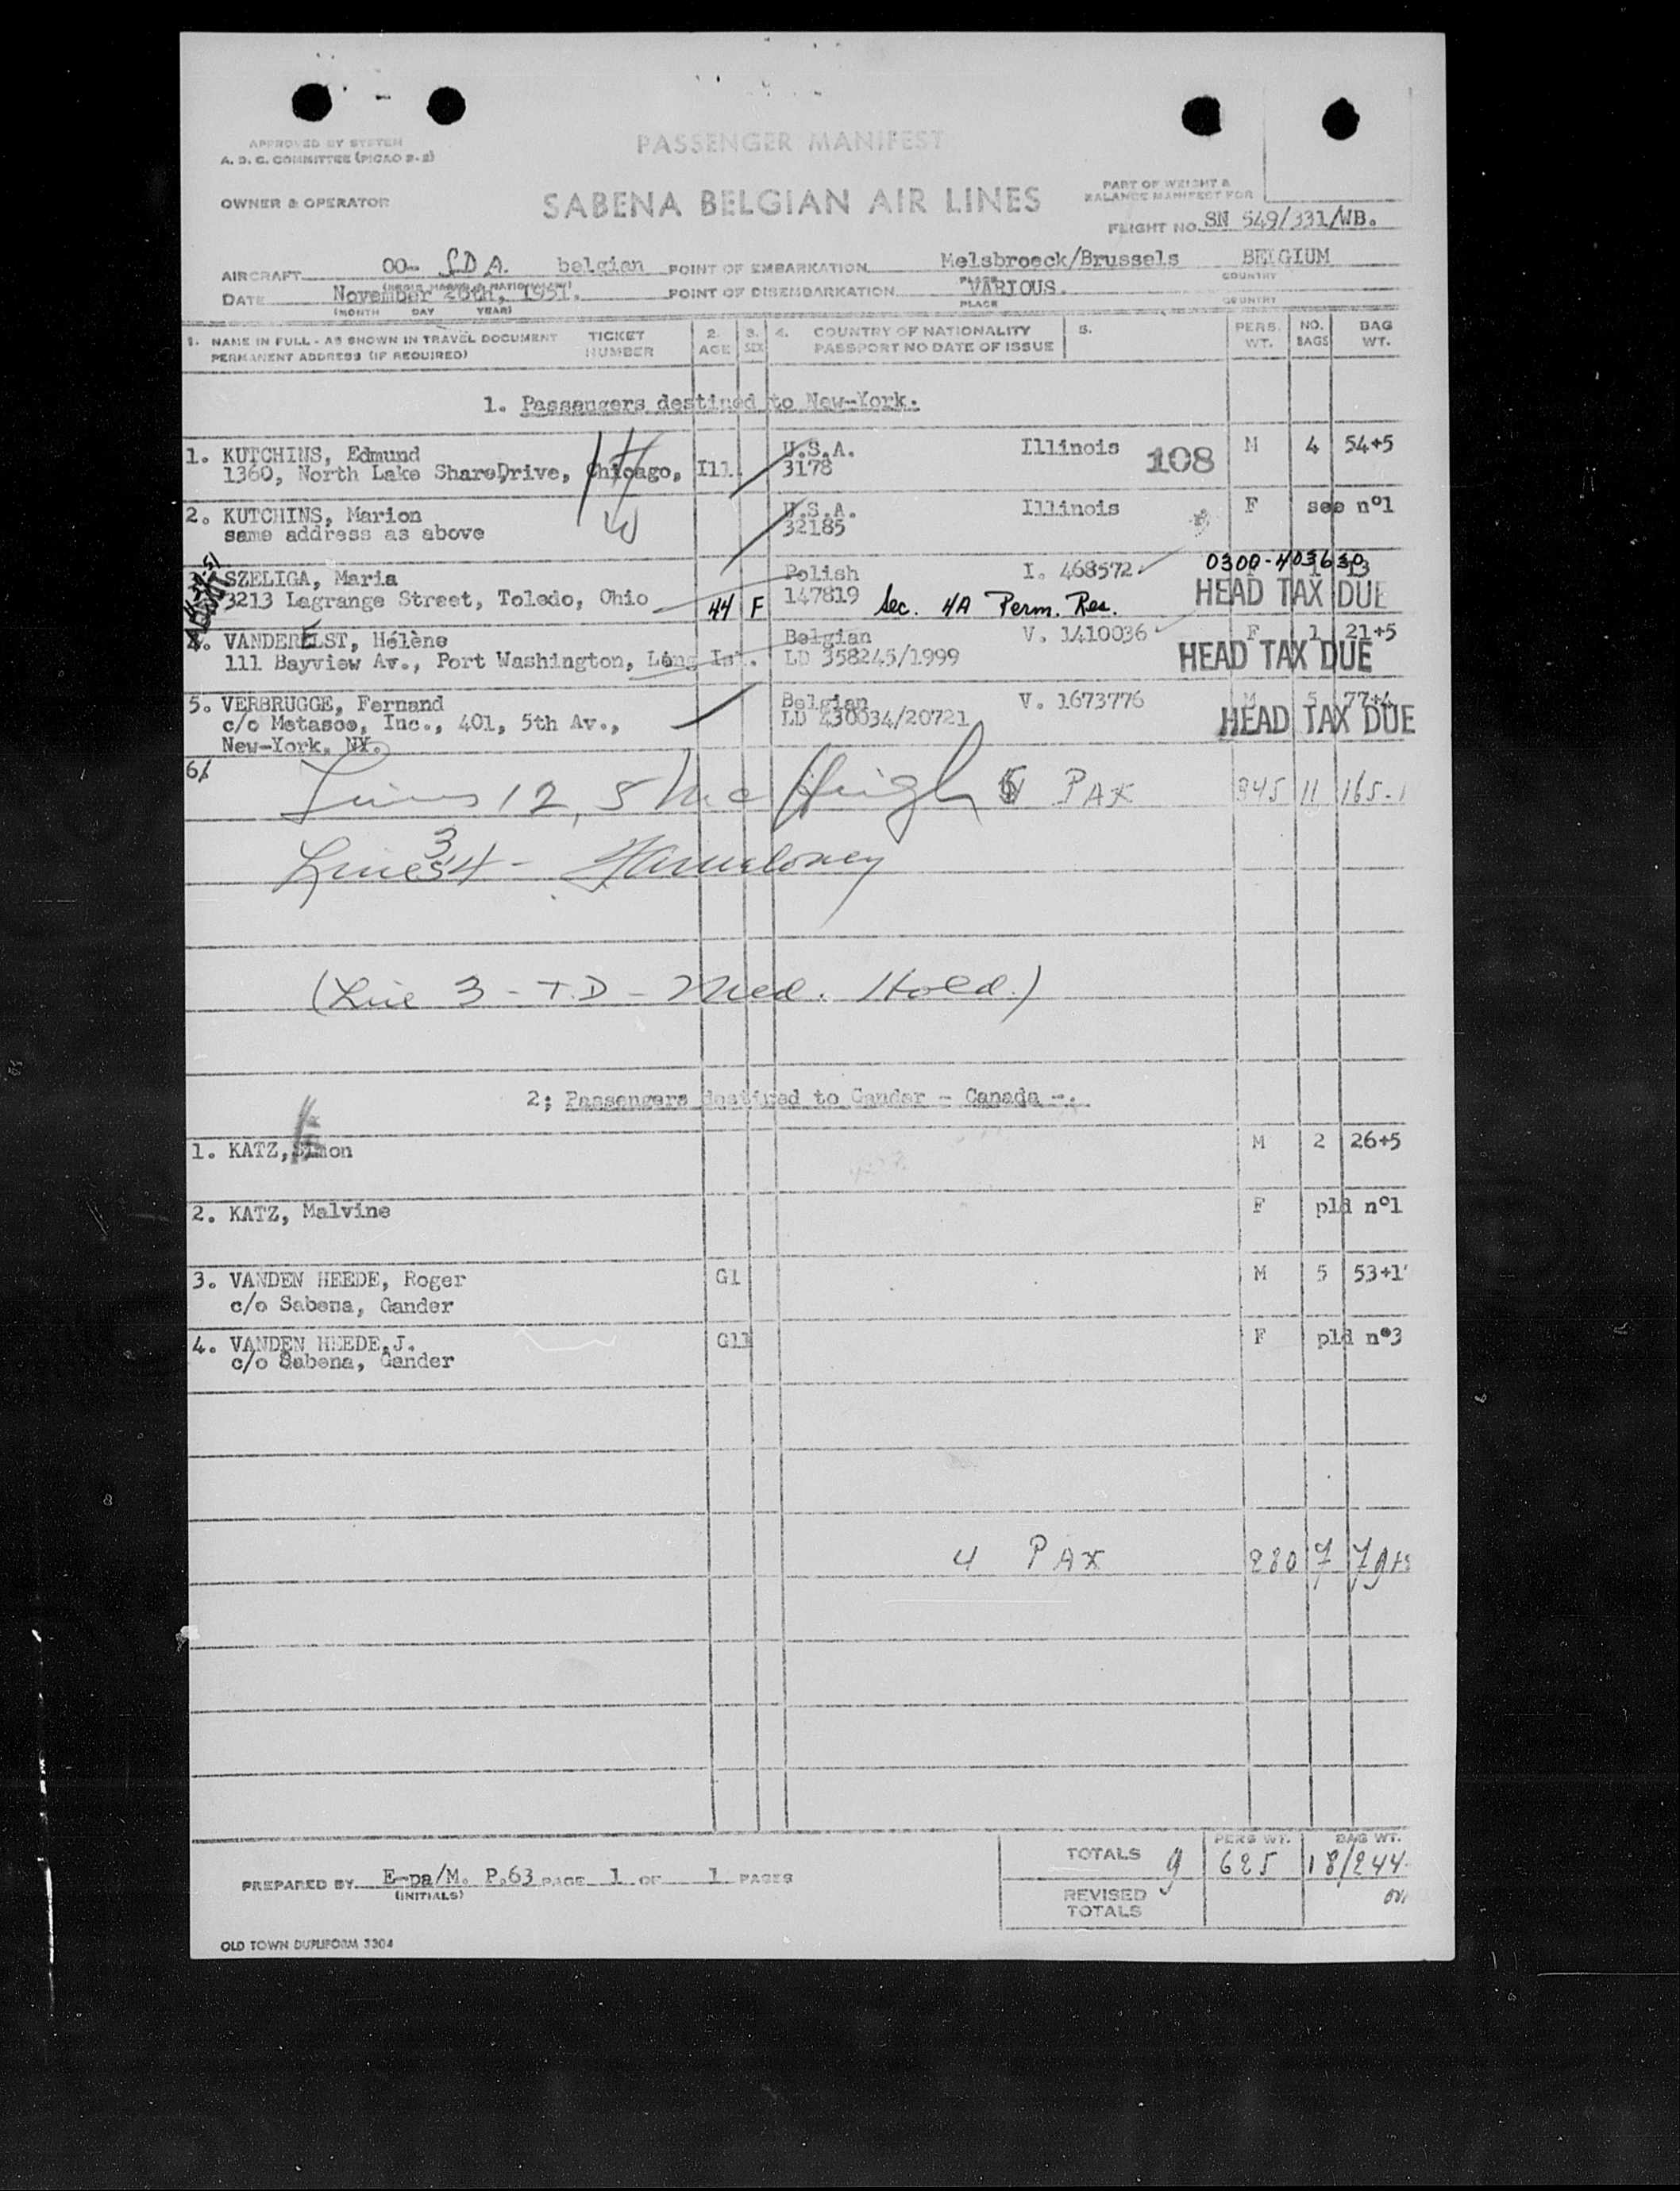 APPROVED BY SYSTEM
A. D. C. COMMITTEE (PICAO 2-2)
PASSENGER MANIFEST
OWNER & OPERATOR
SABENA BELGIAN AIR LINES
PART OF WEIGHT &
BALANCE MANIFEST FOR
FLIGHT NO. SN 549/331/WB.
AIRCRAFT OO- SDA. belgian POINT OF EMBARKATION Melsbroeck/Brussels BELGIUM
PLACE COUNTRY
DATE November 28th, 1951. POINT OF DISEMBARKATION VARIOUS.
(MONTH DAY YEAR) PLACE COUNTRY
1. NAME IN FULL - AS SHOWN IN TRAVEL DOCUMENT TICKET 2. 3. 4. COUNTRY OF NATIONALITY 5. PERS. NO. BAG
PERMANENT ADDRESS (IF REQUIRED) NUMBER AGE SEX PASSPORT NO DATE OF ISSUE WT. BAGS WT.
1. Passengers destined to New-York.
1. KUTCHINS, Edmund U.S.A. Illinois 108 M 4 54+5
1360, North Lake ShareDrive, Chicago, Ill. 3178
2. KUTCHINS, Marion U.S.A. Illinois F see n°1
same address as above 32185
SZELIGA, Maria Polish I. 468572 0300-403630 1 13
3213 Lagrange Street, Toledo, Ohio 44 F 147819 Sec. 4A Perm. Res. HEAD TAX DUE
4. VANDERELST, Hélène Belgian V. 1410036 F 1 21+5
111 Bayview Av., Port Washington, Long Isl. LD 358245/1999 HEAD TAX DUE
5. VERBRUGGE, Fernand Belgian V. 1673776 M 5 77+4
c/o Metasco, Inc., 401, 5th Av., LD 430034/20721 HEAD TAX DUE
New-York. NY.
6/ Lines 1 2, 5 McHugh 5 PAX 345 11 165-1
Lines 3,4 -
(Line 3 - T.D - Med. Hold.)
2; Passengers destined to Gander - Canada -.
1. KATZ, Simon M 2 26+5
2. KATZ, Malvine F pld n°1
3. VANDEN HEEDE, Roger G1 M 5 53+1
c/o Sabena, Gander
4. VANDEN HEEDE, J. G11 F pld n°3
c/o Sabena, Gander
4 PAX 280 7 79+5
TOTALS 9 PERS WT. 625 BAG WT. 18/244
PREPARED BY E-pa/M. P.63 PAGE 1 OF 1 PAGES
(INITIALS)
REVISED
TOTALS
OLD TOWN DUPLIFORM 3304